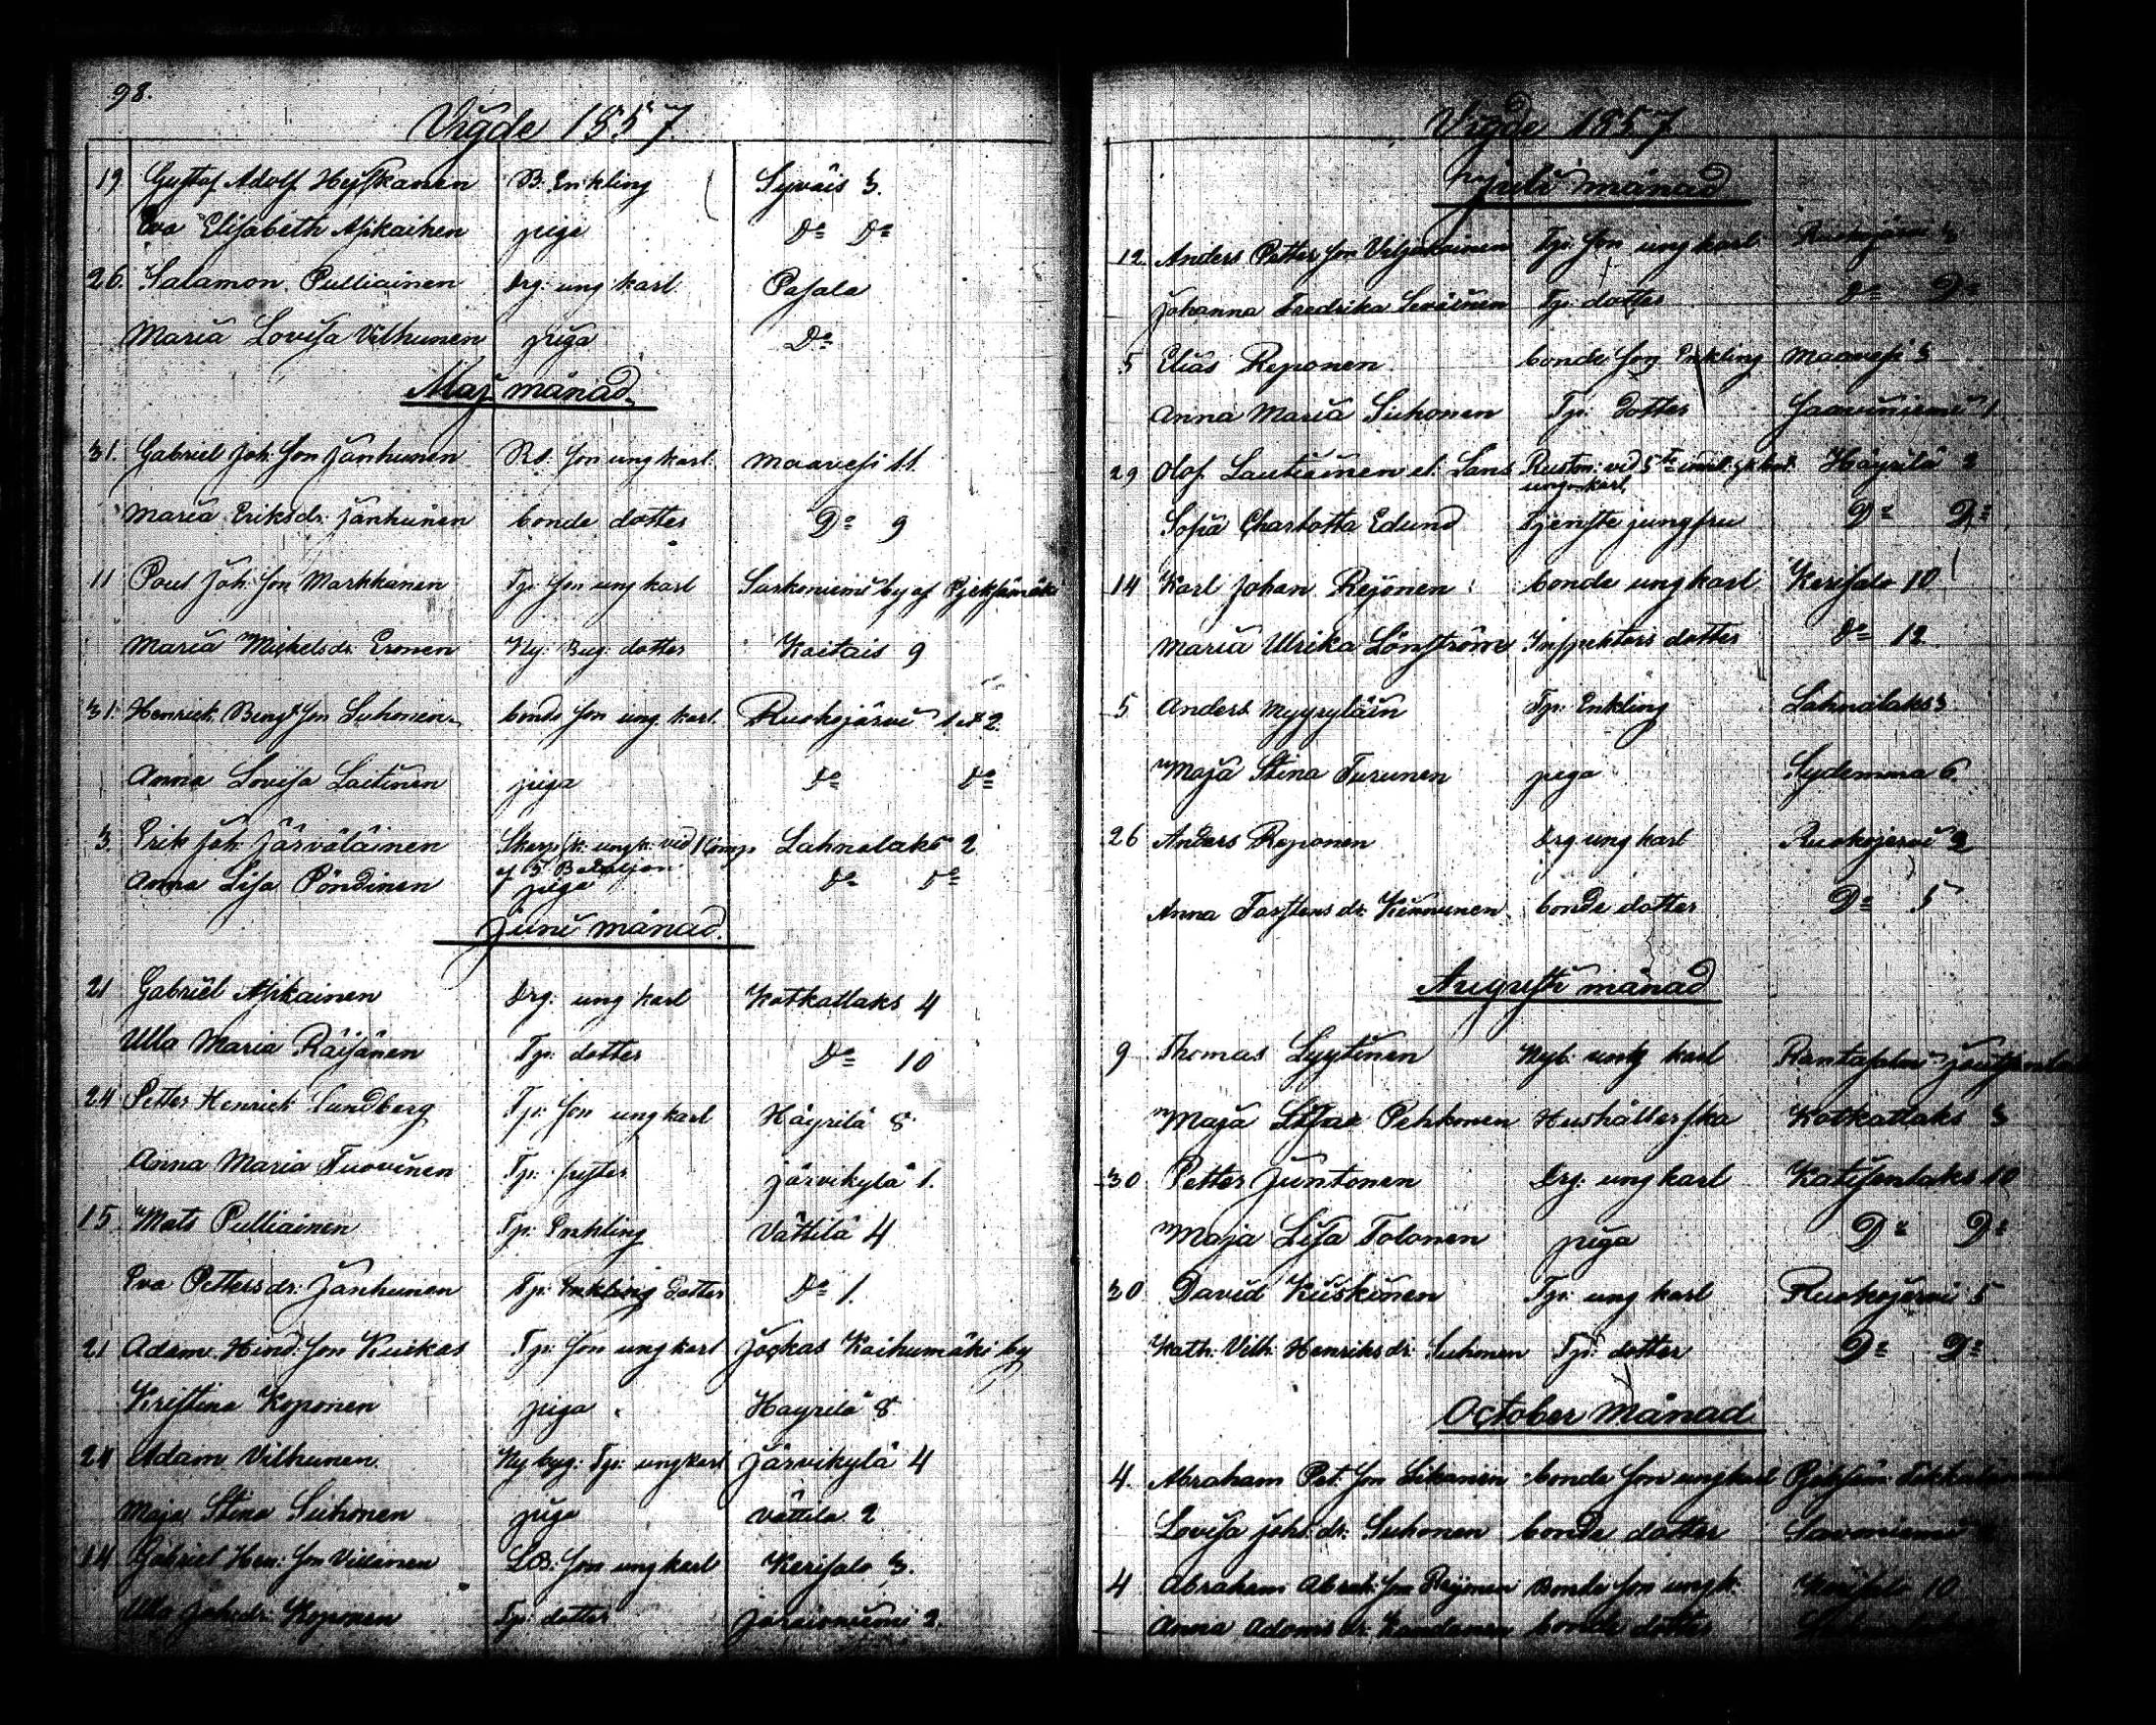 98.
Vigde 1857
19 Gustaf Adolf Hyſkanen B. Enkling Syväis 3.
Eva Eliſabeth Aſikainen piga Do Do
26. Salamon Pulliainen Drg: ung karl. Paſala
Maria Loviſa Vilhunen piga Do
Maj månad
31. Gabriel Joh: ſon Jänhunen Rd. ſon ung karl. Maaveſi 11.
Maria Eriksdr. Jänhunen bonde dotter Do 9
11 Poul Joh: ſon Markkanen Tp: ſon ung karl by af
Maria Michelsdr. Eronen Ny: Byg: dotter Kaitais 9
31. Henrick Bengt ſon Suhonen bonde ſon ung karl. Ruokojärvi 1 et 2.
Anna Loviſa Laitinen piga Do Do
3. Erik Joh: Järväläinen Skarpſk: ungk: vid 1 Comp. Lahnalaks 2
af 5 Bataljon
Anna Liſa Pöndinen piga Do Do
Juni månad.
21 Gabriel Aſikainen Drg: ung karl Kotkatlaks 4
Ulla Maria Räiſänen Tp: dotter Do 10
24 Petter Henrick Lundberg Tp: ſon ung karl Häyrilä 8.
Anna Maria Tuovinen Tp: ſyſter Järvikylä 1.
15. Mats Pulliainen Tp: Enkling Vättilä 4
Eva Pettersdr. Jänhunen Tp: Enkling Dotter Do 1.
21 Adam Hind: ſon Kuikas Tp: ſon ung karl Jockas Kaihumäki by
Kriſtina Koponen piga Hayrilä 8
24 Adam Vilhunen Ny byg: Tp: ungkarl Järvikylä 4
Maja Stina Suhonen piga Vättila 2
14 Gabriel Hen: ſon Vilänen LB. ſon ungkarl Keriſalo 3.
Ulla Joh: dr. Koponen Tp: dotter 2.
Vigde 1857
Juli månad
12. Anders Petter ſon Viljakainen Tp: ſon ung karl Ruokojärvi 3
Johanna Fredrika Tp: dotter Do Do
5 Elias Reponen bonde ſon Enkling Maaveſi 3
Anna Maria Suhonen Tp: Dotter 1.
29 Olof Lautiainen el. Lans vid 5te Häyrilä 2
ung karl
Sofia Charlotta Edund Tjenſte jungfru Do Do
14 Karl Johan Rejonen bonde ung karl Keriſalo 10
Maria Ulrika Lönſtröm Inſpektors dotter Do 12
5 Anders Myyryläin Tp: Enkling Lahnalaks 3
Maja Stina Turunen piga Sydenmaa 6
26 Anders Reponen Drg ung karl Ruokojervi 2
Anna Torſtens dr. Kinnunen bonde dotter Do 5
Auguſti månad
9 Thomas Lyytinen Nyb: ung karl Rantaſalmi
Maja Liſa Pehkonen Hushållerſka Kotkatlaks 3
30 Petter Juntonen Drg: ung karl Katiſenlaks 10
Maja Liſa Tolonen piga Do Do
30 David Kiiskinen Tp: ung karl Ruokojervi 5
Kath: Vilh: Henriks dr. Suhonen Tp: dotter Do Do
October månad
4. Abraham Pet: ſon Likanen bonde ſon ungkarl
Loviſa Joh: dr. Suhonen bonde dotter
4 Abraham Abrah: ſon Reijonen Bonde ſon ungk: Keriſalo 10
Anna Adams dr. bonde dotter